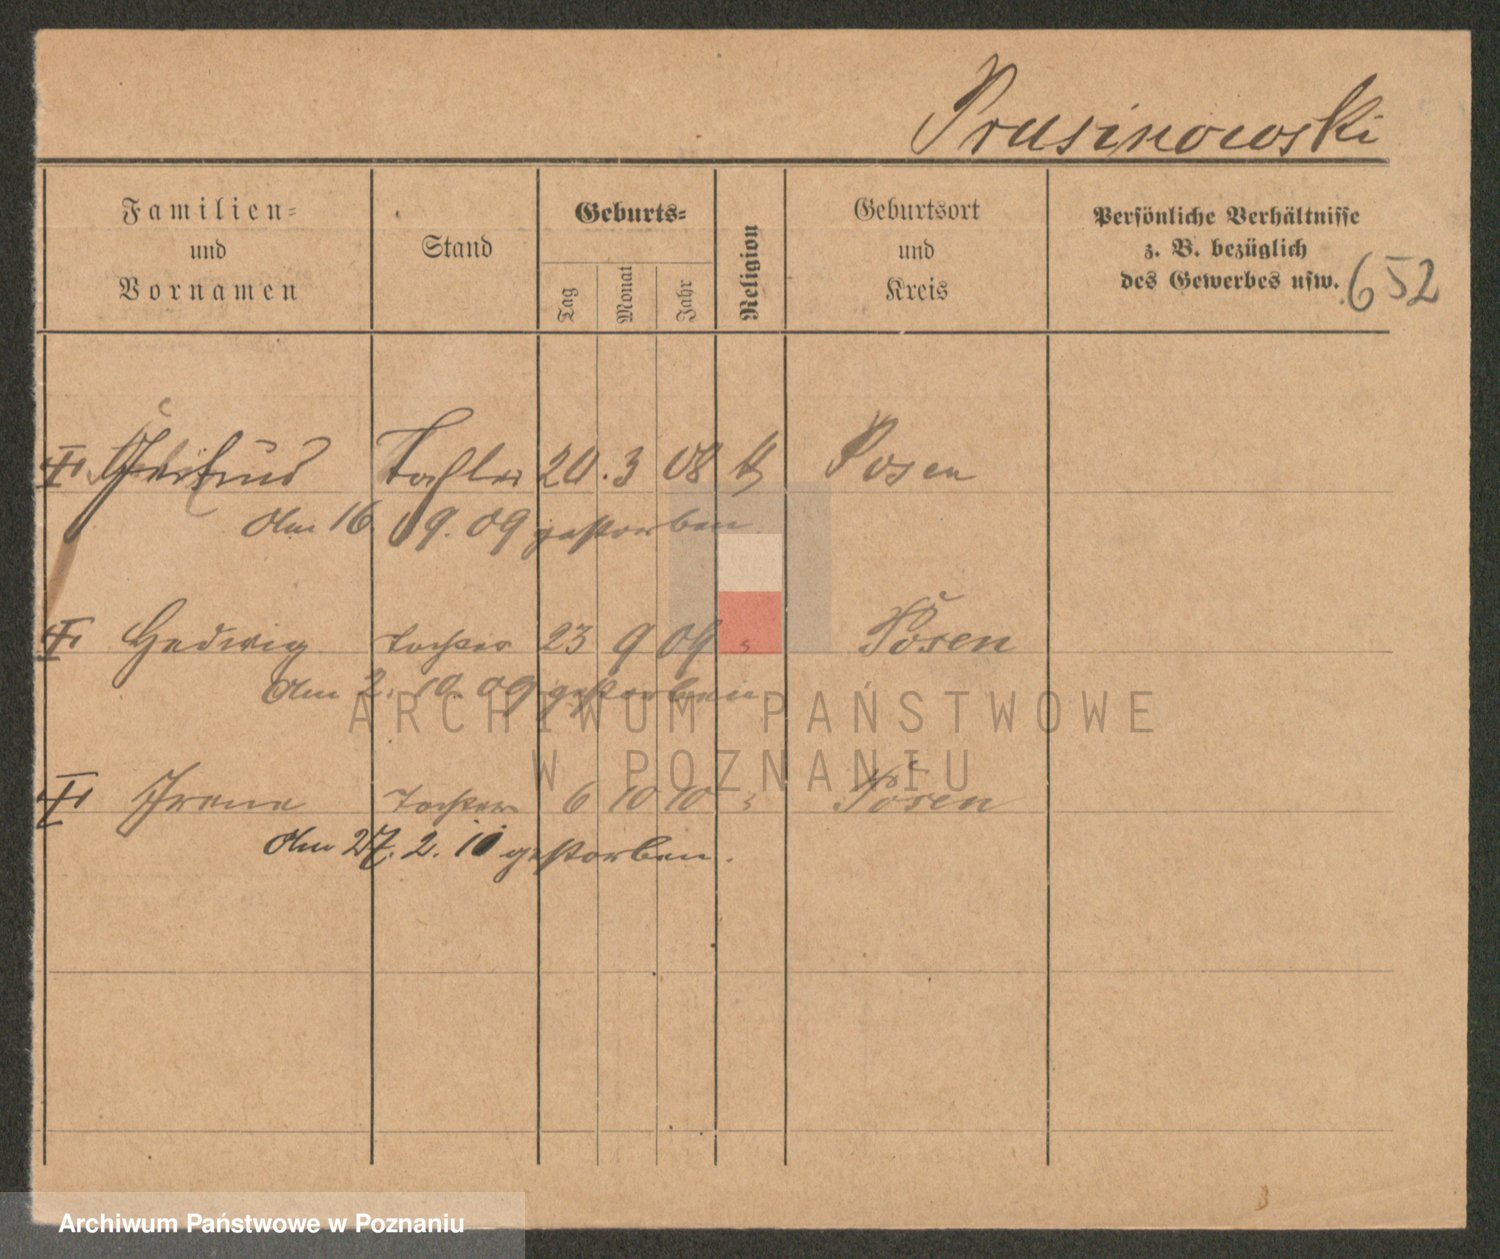 Prusinowski
Familien-
und
Vornamen
Stand
Geburts-
Tag
Monat
Jahr
Religion
Geburtsort
und
Kreis
Persönliche Verhältnisse
z. B. bezüglich
des Gewerbes usw.
652
Gertrud Tochter 20. 3 08 Posen
Am 16 09. 09 gestorben
Hedwig Tochter 23 9 09 " Posen
Am 2. 10. 09 gestorben
Irene Tochter 6 10 10 " Posen
Am 27. 2. 11 gestorben.
ARCHIWUM PAŃSTWOWE
W POZNANIU
Archiwum Państwowe w Poznaniu